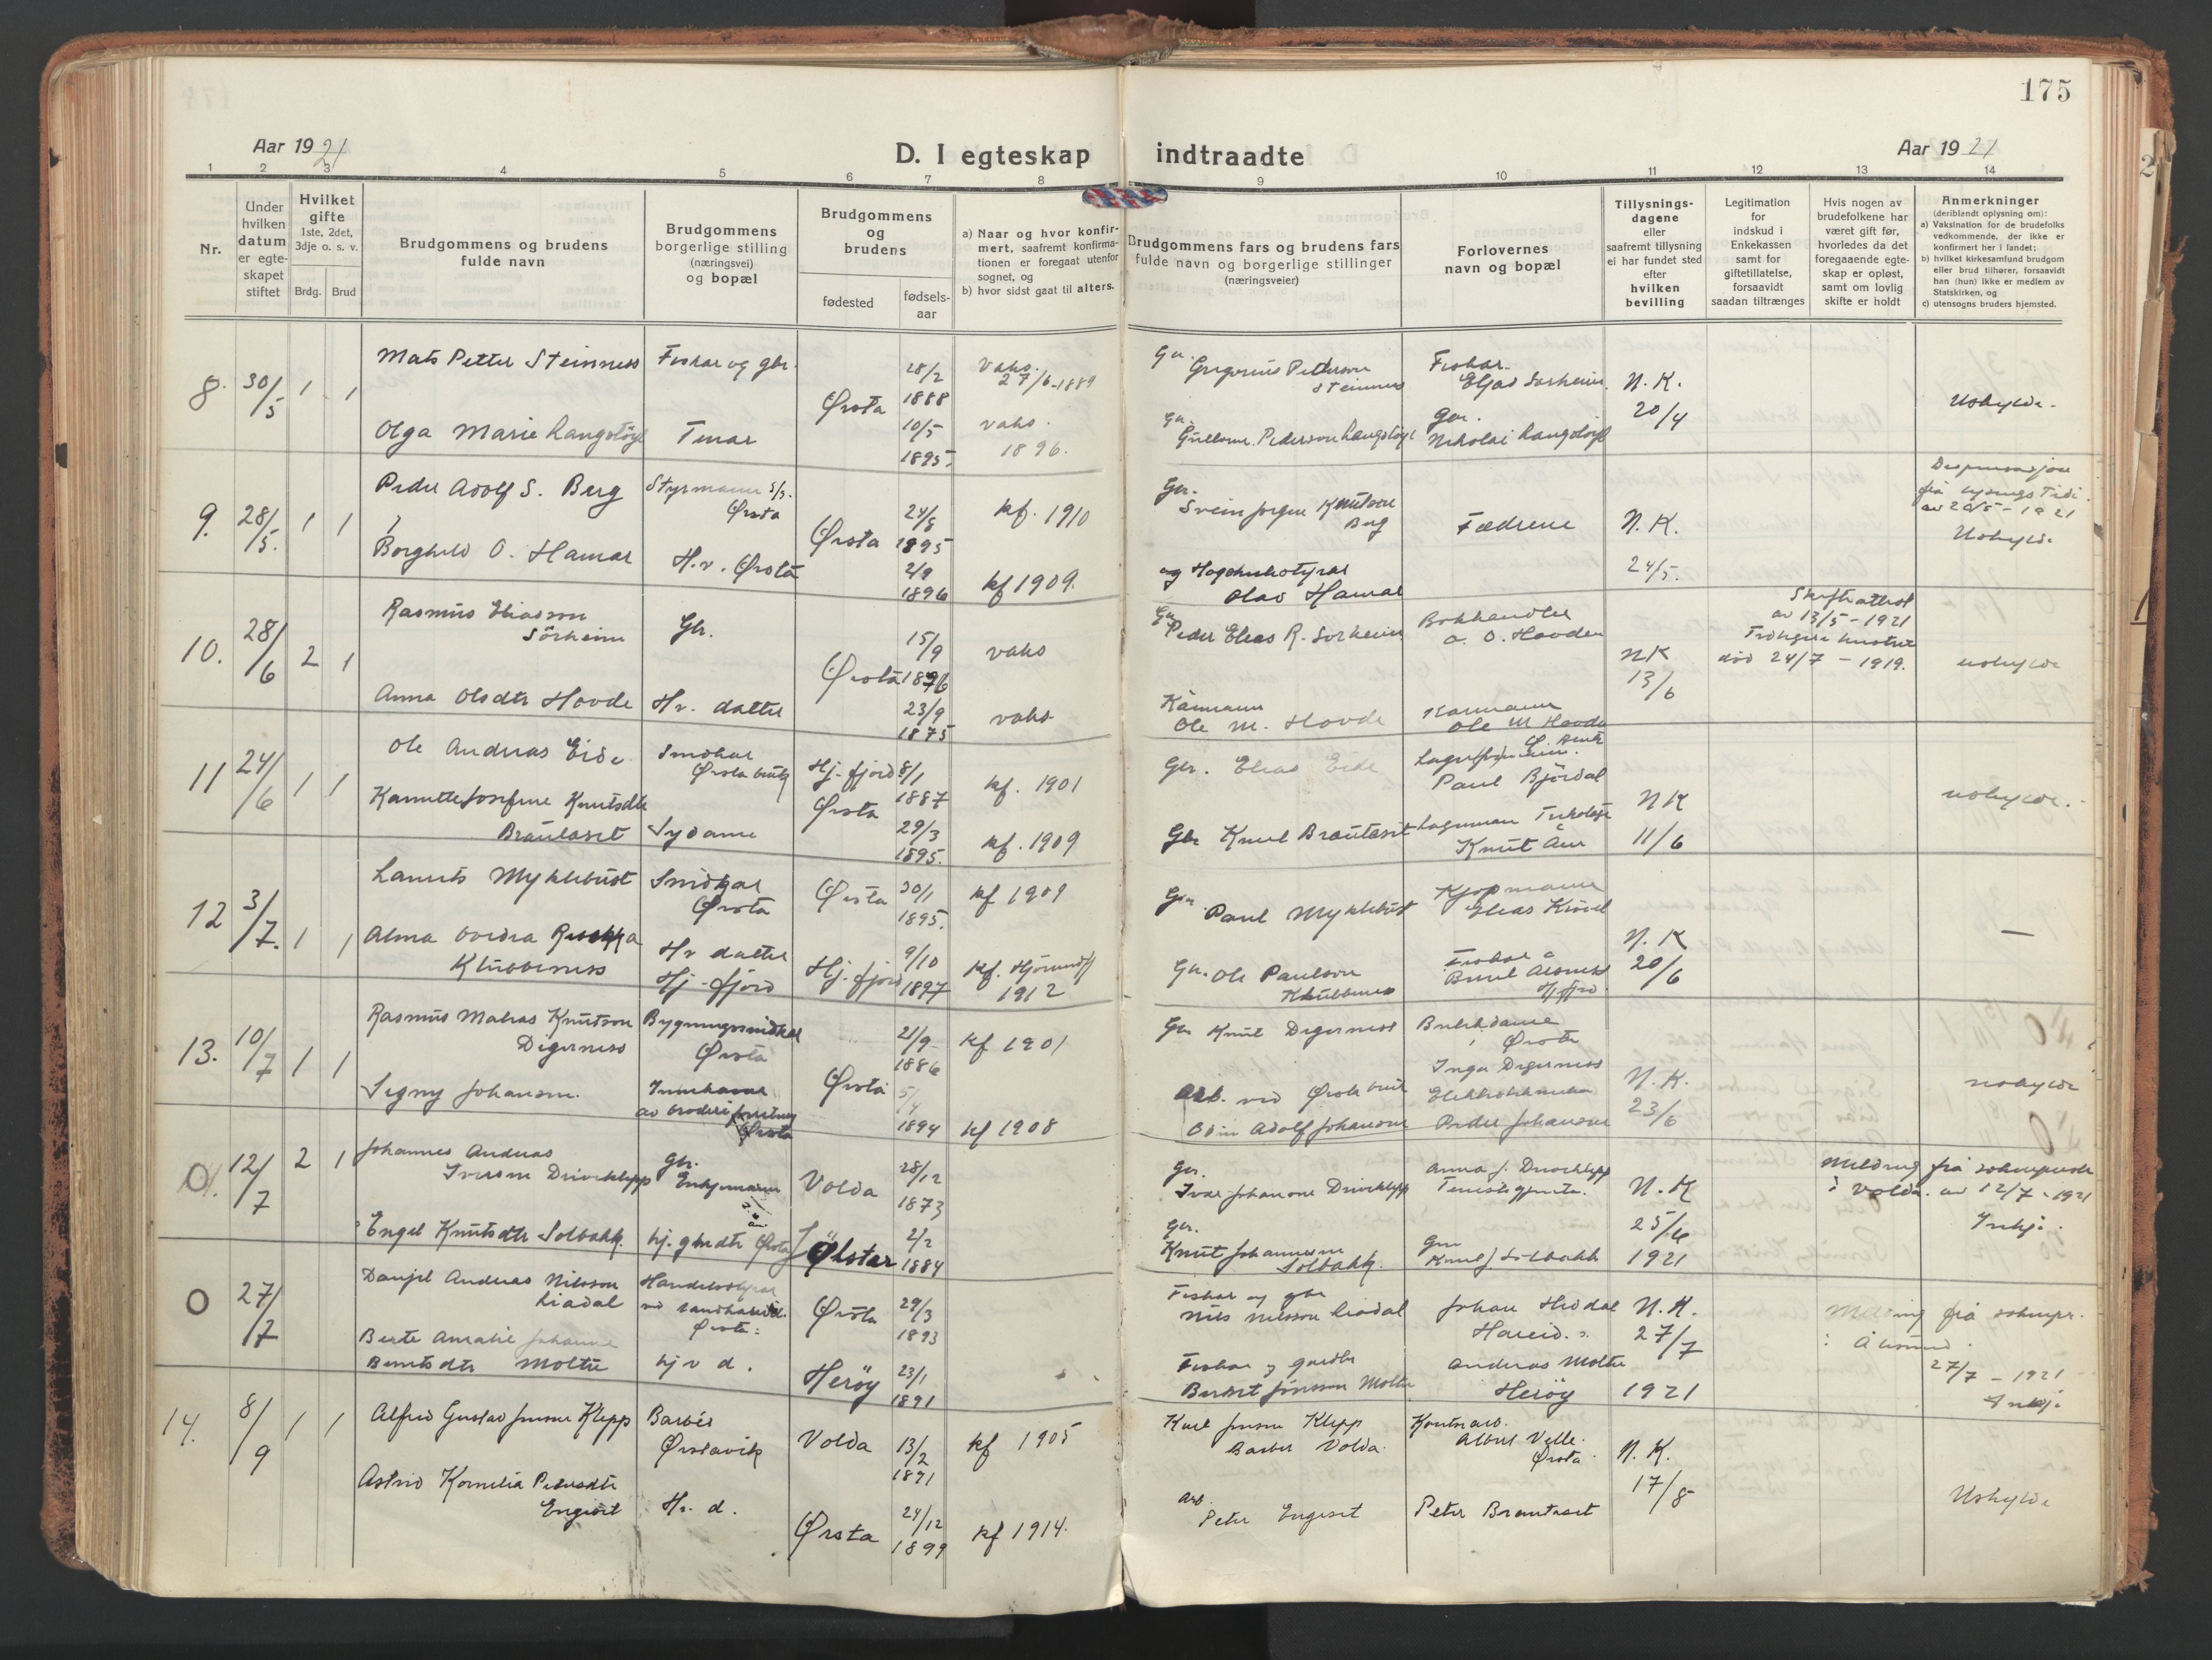 175
Aar 1921
D. I egteskap indtraadte
Aar 1921
1 2 3 4 5 6 7 8 9 10 11 12 13 14
Nr.
Under
hvilken
datum
er egte-
skapet
stiftet
Hvilket
gifte
1ste, 2det,
3dje o. s. v.
Brdg. Brud
Brudgommens og brudens
fulde navn
Brudgommens
borgerlige stilling
(næringsvei)
og bopæl
Brudgommens
og
brudens
fødested
fødsels-
aar
a) Naar og hvor konfir-
mert, saafremt konfirma-
tionen er foregaat utenfor
sognet, og
b) hvor sidst gaat til alters.
Brudgommens fars og brudens fars
fulde navn og borgerlige stillinger
(næringsveier)
Forlovernes
navn og bopæl
Tillysnings-
dagene
eller
saafremt tillysning
ei har fundet sted
efter
hvilken
bevilling
Legitimation
for
indskud i
Enkekassen
samt for
giftetillatelse,
forsaavidt
saadan tiltrænges
Hvis nogen av
brudefolkene har
været gift før,
hvorledes da det
foregaaende egte-
skap er opløst,
samt om lovlig
skifte er holdt
Anmerkninger
(deriblandt oplysning om):
a) Vaksination for de brudefolks
vedkommende, der ikke er
konfirmert her i landet;
b) hvilket kirkesamfund brudgom
eller brud tilhører, forsaavidt
han (hun) ikke er medlem av
Statskirken, og
c) utensogns bruders hjemsted.
8. 30/5 1 1
Mats Petter Steinness
Fiskar og gbr.
Ørsta
28/2
1888
vaks.
27/6-1889
Gbr.
Gregorius Petterson
Steinnes
Fiskar.
Eljas Sørheim.
N. K.
20/4
Uskylde.
Olga Marie Langstøyl
10/5
1895.
vaks.
1896.
Gbr.
Pederson Langstøyl
Gbr.
Nikolai Langstøyl
9. 28/5. 1 1
Peder Adolf S. Berg
Styrmann S/S.
Ørsta
Ørsta
24/8
1895
kf. 1910
Gbr.
Svein Jørgen Knutson
Berg
Fædrene
N. K.
24/5.
av 20/5 - 1921
Uskylde
Borghild O. Hamar
H.v. Ørsta
2/9
1896
kf 1909.
Olav Hamar
10. 28/6 2 1
Rasmus Eliasson
Sørheim
Gbr.
Ørsta
15/9
1876
vaks
Gbr.
Peder Elias R. Sørheim
Bokhandler
O. Hovden
NK
13/6
Skifteattest
av 13/5 - 1921
død 24/7 - 1919.
uskylde
Anna Olsdtr Hovde
Hv. datter
23/9
1875
vaks
Ole M. Hovde
Ole M Hovde
11 24/6 1 1
Ole Andreas Eide
Snidkar
Ørsta bruk
Hj.-fjord
8/1
1887
kf. 1901
Gbr. Elias Eide
Paul Bjørdal
NK
11/6
uskylde.
Josefine Knutsdtr
Brautaset
Sydame
Ørsta
29/3
1895.
kf. 1909
Gbr Knut Brautaset
Knut Aur
12 3/7. 1 1
Laurits Myklebust
Snidkar
Ørsta
Ørsta
30/1
1895.
kf 1909
Gbr.
Paul Myklebust
Kjøpmann
Elias Kirvel
N. K
20/6
—
Alma
Klubbeness
Hv datter
Hj-fjord
Hj.-fjord
9/10
1897
kf. Hjørundfj
1912
Gbr. Ole Paulson
Klubbenes
Fiskar
Hj.fjord.
13. 10/7 1 1
Rasmus Matias Knutson
Digerness
Bygningssnidkar
Ørsta
Ørsta
21/9
1886
kf 1901
Gbr Knut Digerness
Butikkdame
Ørsta
Inga Digerness
N. K.
23/6
uskylde
Signy Johansen.
Innehavar
av broderiforretning
Ørsta
5/4
1894
kf 1908
Arb. ved Ørsta bruk
Odin Adolf Johansen
Peder Johansen
O 12/7 2 1
Johannes Andreas
Iverson Driveklepp
Gbr.
Enkjemann
Volda
28/12
1873
Gbr.
Ivar Johansone Driveklepp
Anna J. Driveklepp
Tenestegjente.
N. K
25/6
1921
Melding frå sokneprest
i Volda. av 12/7 - 1921
Engel Knutsdtr Solbakk.
Ørsta
Ølstar
2/2
1884
Gbr.
Knut Johannesen
Solbakk.
Gbr
Knut J Solbakk
O 27/7
Danjel Andreas Nilsson
Liadal
Handelsstyrar
Ørsta.
Ørsta
29/3
1893
Fiskar og gbr
Nils Nilsson Liadal
Johan Hidal
Hareid.
N. K.
27/7
1921
Melding frå soknepr.
i Ålesund.
27/7 - 1921
Berte Amalie Johanne
Berntsdtr Moltu
hj v d.
Herøy
23/1
1891
Fiskar og gardbr
Bernt Jonsson Moltu
Andreas Moltu
Herøy
14. 8/9 1 1
Alfred Gustav Jensen Klepp
Barbér
Ørstavik
Volda
13/2
1891
kf 1905
Karl Jensen Klepp
Barber Volda.
Kontorarb.
Albert Velle.
Ørsta.
N. K.
17/8
Uskylde
Astrid Kornelia Pedersdtr
Engeset
Hv. d.
Ørsta
24/12
1899
kf 1914.
Arb.
Peter Engeset
Peter Brautaset